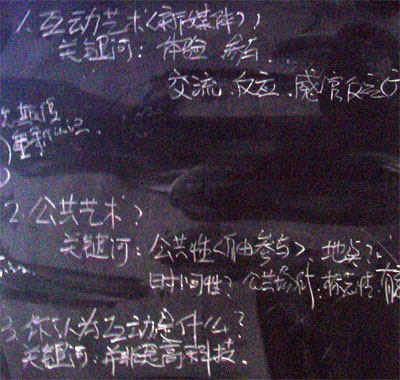 1. 互动艺术(新媒体)?
关键词: 体验 参与...
交流. 反应. 感官反应
2. 公共艺术?
关键词: 公共性<自由参与> 地点?
时间性? 公共场所. 标志性
3. 你认为互动是什么?
关键词: 并非是高科技.